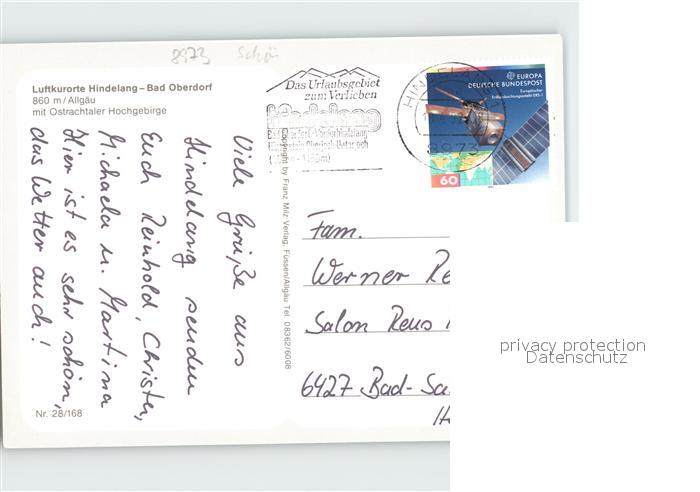 8973 Schö
Luftkurorte Hindelang – Bad Oberdorf
860 m/Allgäu
mit Ostrachtaler Hochgebirge
Viele Grüße aus
Hindelang senden
Euch Reinhold, Christer,
Michaela u. Martina
Hier ist es sehr schön,
das Wetter auch!
Nr. 28/168
Copyright by Franz Milz Verlag, Füssen/Allgäu Tel. 08362/6008
Das Urlaubsgebiet
zum Verlieben
HINDELA
8973
EUROPA
DEUTSCHE BUNDESPOST
Europäischer
Erderkundungssatellit ERS-1
60
Fam.
Werner Re
Salon Reus
6427 Bad-Sa
privacy protection
Datenschutz